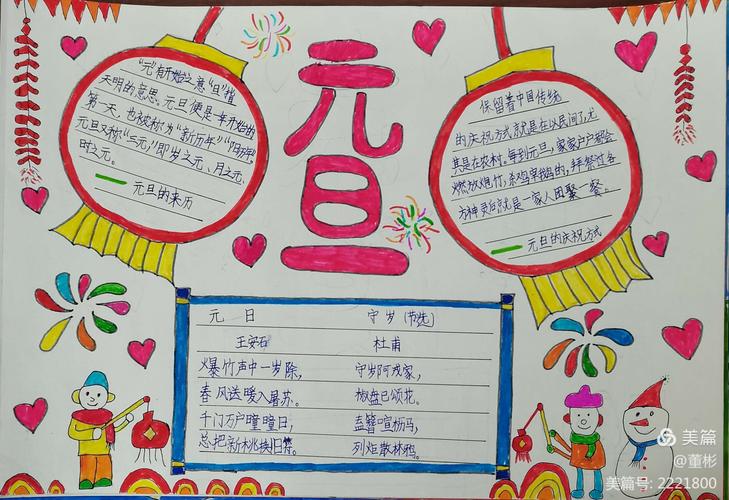 元旦
"元"有开始之意"旦"指
天明的意思。元旦便是一年开始的
第一天,也被称为"新历年""阳历年"
元旦又称"三元"即岁之元、月之元、
时之元。
元旦的来历
保留着中国传统
的庆祝方式就是在以民间了,尤
其是在农村,每到元旦,家家户户都会
燃放炮竹,杀鸡宰鹅的,拜祭过各
方神灵后就是一家人团聚一餐。
元旦的庆祝方式
元 日
王安石
爆竹声中一岁除,
春风送暖入屠苏。
千门万户曈曈日,
总把新桃换旧符。
守岁(节选)
杜甫
守岁阿戎家,
椒盘已颂花。
盍簪喧枥马,
列炬散林鸦。
美篇
@董彬
美篇号: 2221800